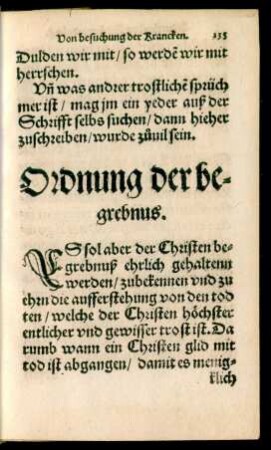 Von besuchung der Krancken. 235
Dulden wir mit / so werdē wir mit
herrschen.
Vñ was andrer trostlichē sprüch
mer ist / mag jm ein yeder auß der
Schrifft selbs suchen / dann hieher
zuschreiben / wurde zůuil sein.
Ordnung der be-
grebnus.
ES sol aber der Christen be-
grebnuß ehrlich gehaltenn
werden / zubekennen vnd zu
ehrn die aufferstehung von den tod
ten / welche der Christen höchster
entlicher vnd gewisser trost ist. Da
rumb wann ein Christen glid mit
tod ist abgangen / damit es menig-
klich